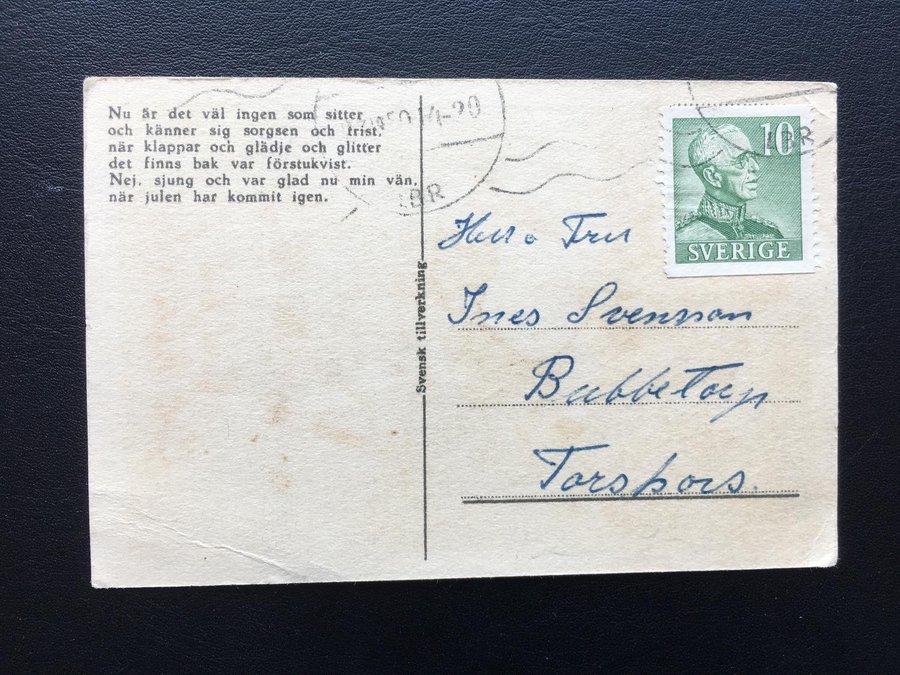 Nu är det väl ingen som sitter
och känner sig sorgsen och trist,
när klappar och glädje och glitter
det finns bak var förstukvist.
Nej, sjung och var glad nu min vän,
när julen har kommit igen.
50 14-20
BR
Svensk tillverkning
10
BR
SVERIGE
Herr o Fru
Ines Svensson
Bubbetorp
Torskors.